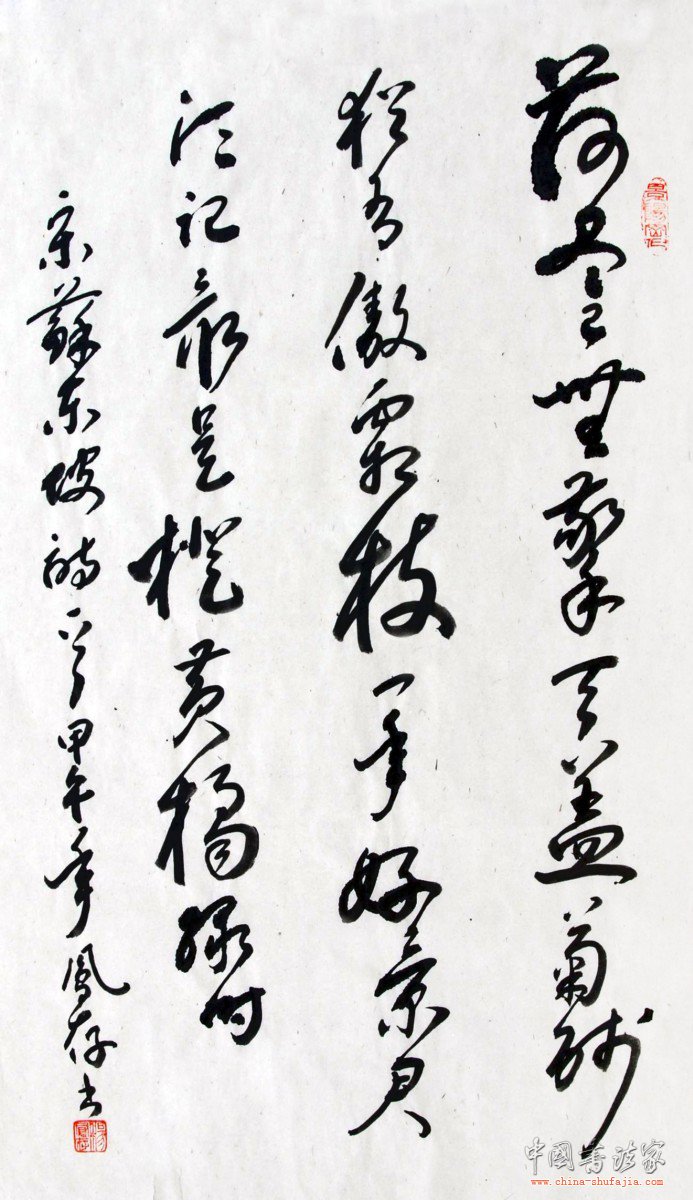 荷尽已無擎天盖菊残
犹有傲霜枝一年好景君
须记最是橙黄橘绿时
宋蘇东坡诗一首甲午年鳳存书
中國書法家
www.china-shufajia.com